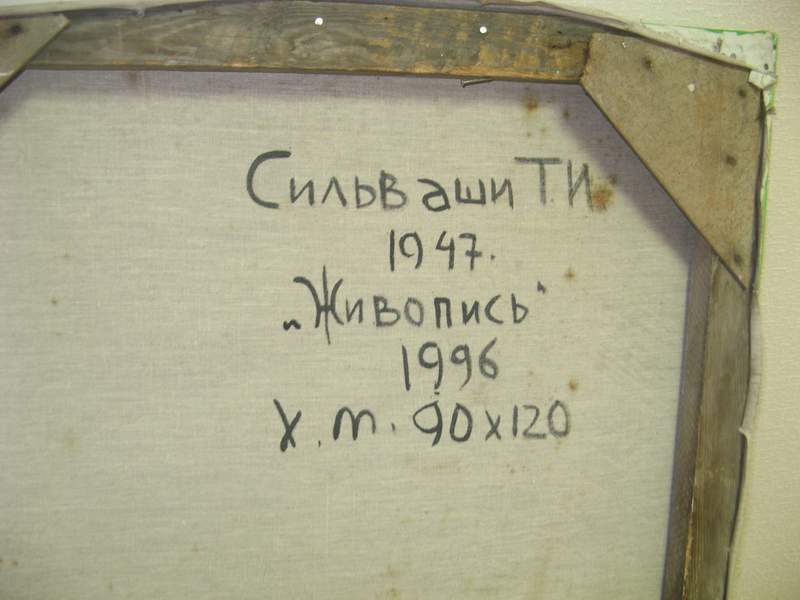 Сильваши Т.И.
1947.
„Живопись"
1996
х.т. 90х120